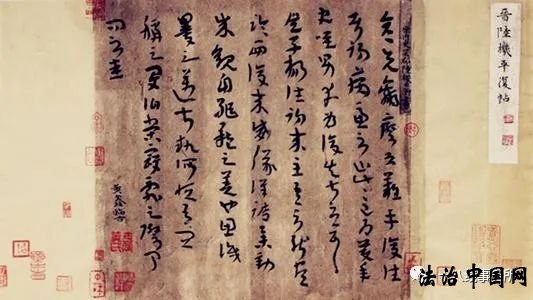 晉陸機平復帖
彦先羸瘵恐難平復往
屬初病慮不止此此已為慶承
使唯男幸為復失前憂耳
吳子楊往初來主吾不能盡
臨西復來威儀詳跱舉動
成觀自軀體之美也思識
量之邁前執所恒有宜
稱之夏伯榮寇亂之際聞
問不悉
法治中国网